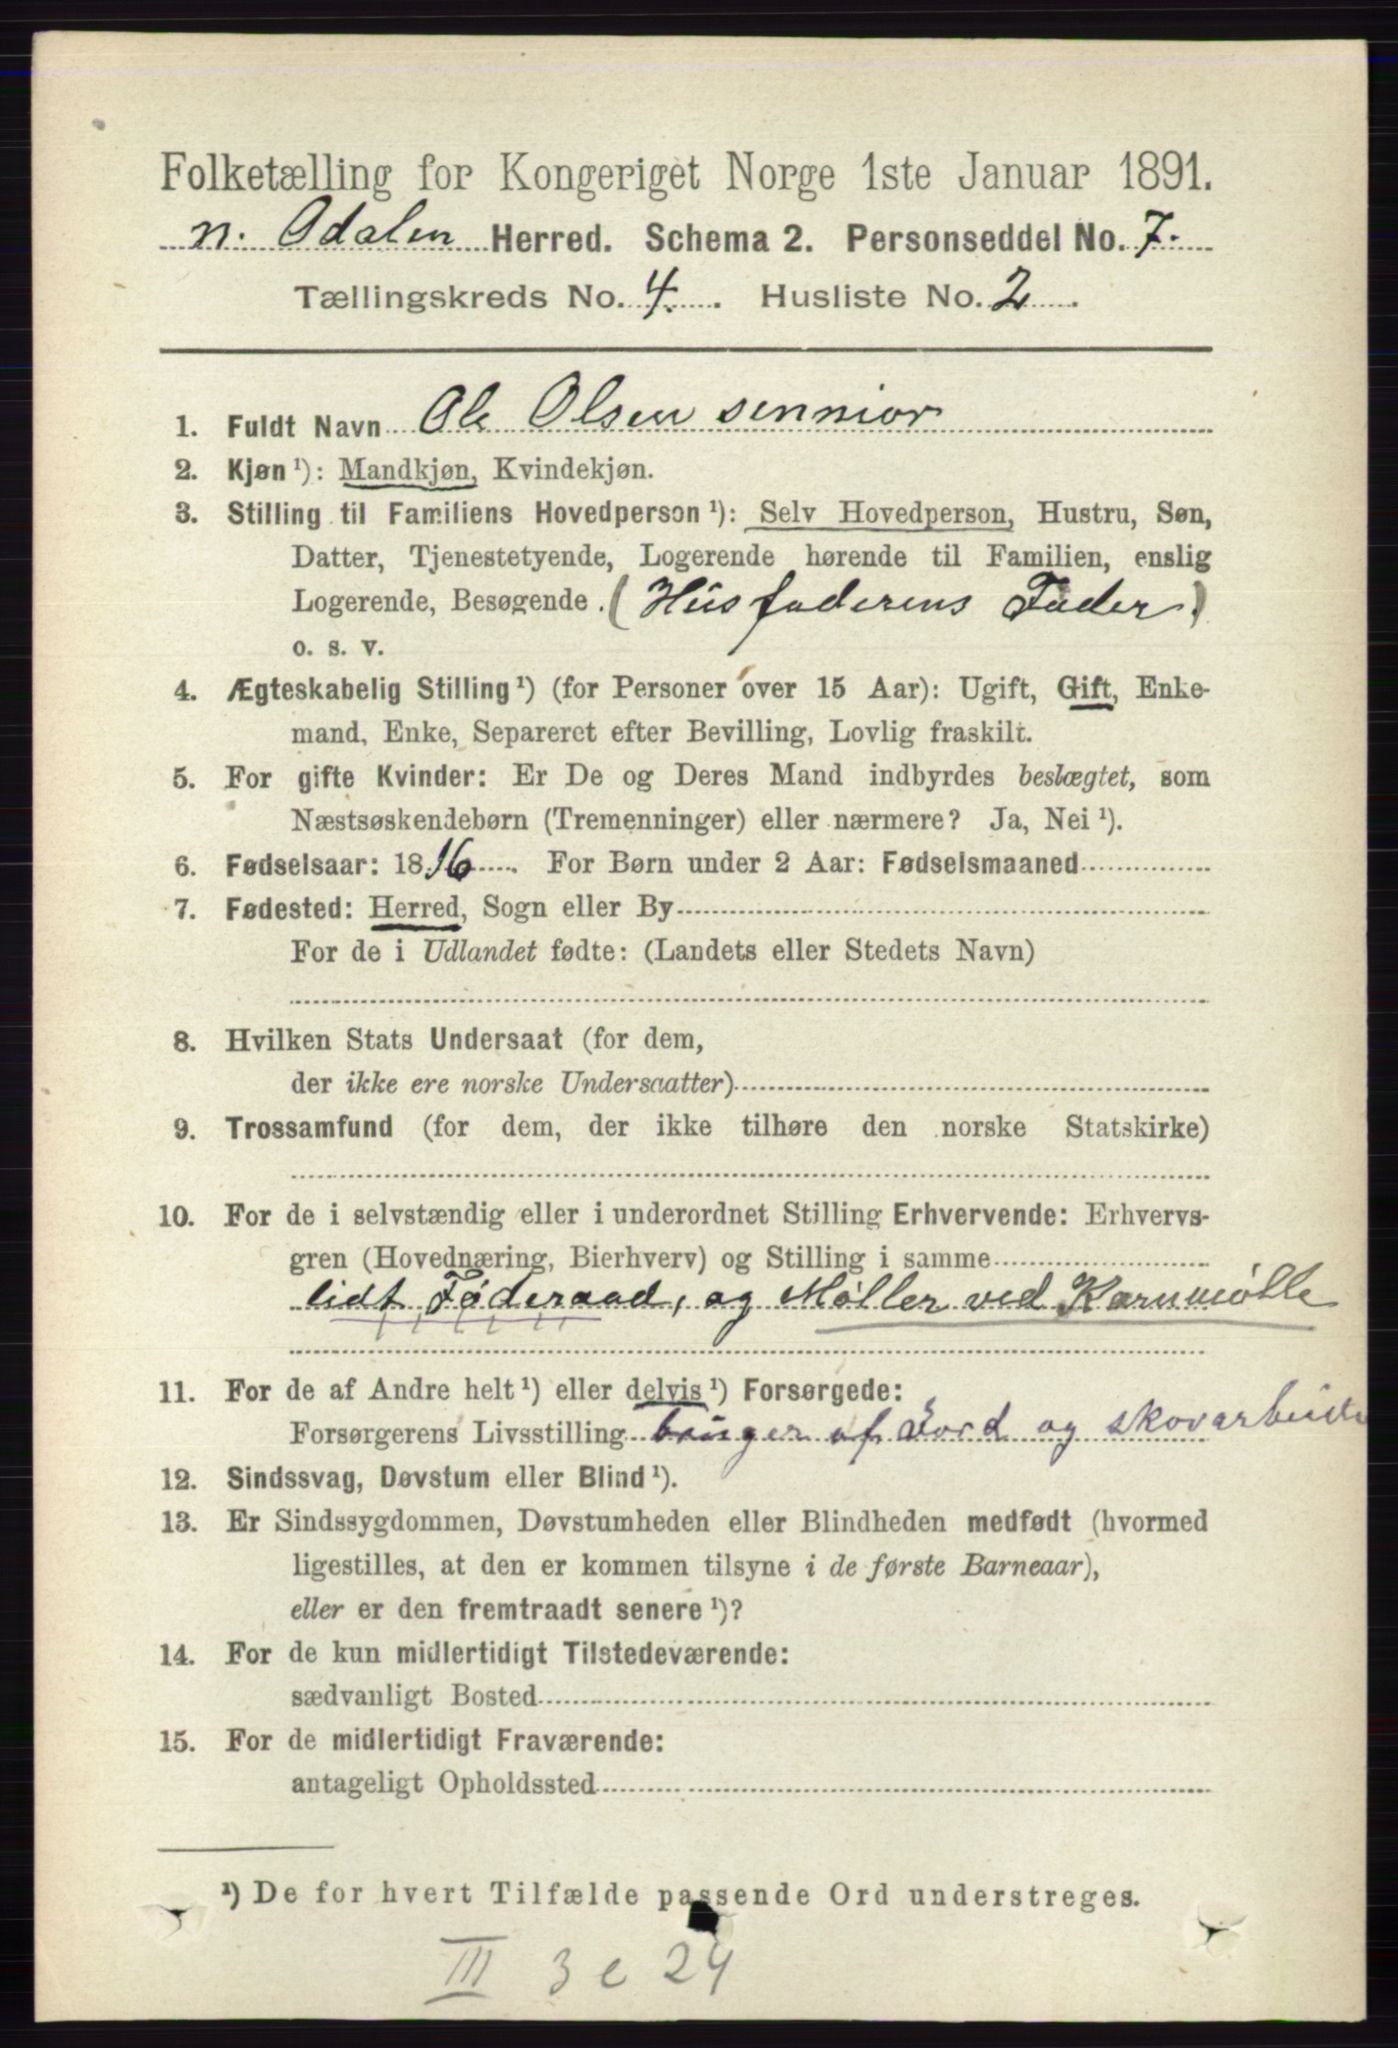 Folketælling for Kongeriget Norge 1ste Januar 1891.
n. Odalen Herred. Schema 2. Personseddel No. 7.
Tællingskreds No. 4. Husliste No. 2.
1. Fuldt Navn Ole Olsen sennior
2. Kjøn ¹): Mandkjøn, Kvindekjøn.
3. Stilling til Familiens Hovedperson ¹): Selv Hovedperson, Hustru, Søn,
Datter, Tjenestetyende, Logerende hørende til Familien, enslig
Logerende, Besøgende. (Husfaderens Fader)
o. s. v.
4. Ægteskabelig Stilling ¹) (for Personer over 15 Aar): Ugift, Gift, Enke-
mand, Enke, Separeret efter Bevilling, Lovlig fraskilt.
5. For gifte Kvinder: Er De og Deres Mand indbyrdes beslægtet, som
Næstsøskendebørn (Tremenninger) eller nærmere? Ja, Nei ¹).
6. Fødselsaar: 1816. For Børn under 2 Aar: Fødselsmaaned
7. Fødested: Herred, Sogn eller By
For de i Udlandet fødte: (Landets eller Stedets Navn)
8. Hvilken Stats Undersaat (for dem,
der ikke ere norske Undersaatter)
9. Trossamfund (for dem, der ikke tilhøre den norske Statskirke)
10. For de i selvstændig eller i underordnet Stilling Erhvervende: Erhvervs-
gren (Hovednæring, Bierhverv) og Stilling i samme
lidt Føderaad, og Møller ved Kornmølle
11. For de af Andre helt ¹) eller delvis ¹) Forsørgede:
Forsørgerens Livsstilling bruger af Jord og skovarbeide
12. Sindssvag, Døvstum eller Blind ¹).
13. Er Sindssygdommen, Døvstumheden eller Blindheden medfødt (hvormed
ligestilles, at den er kommen tilsyne i de første Barneaar),
eller er den fremtraadt senere ¹)?
14. For de kun midlertidigt Tilstedeværende:
sædvanligt Bosted
15. For de midlertidigt Fraværende:
antageligt Opholdssted
¹) De for hvert Tilfælde passende Ord understreges.
III 3 c 24